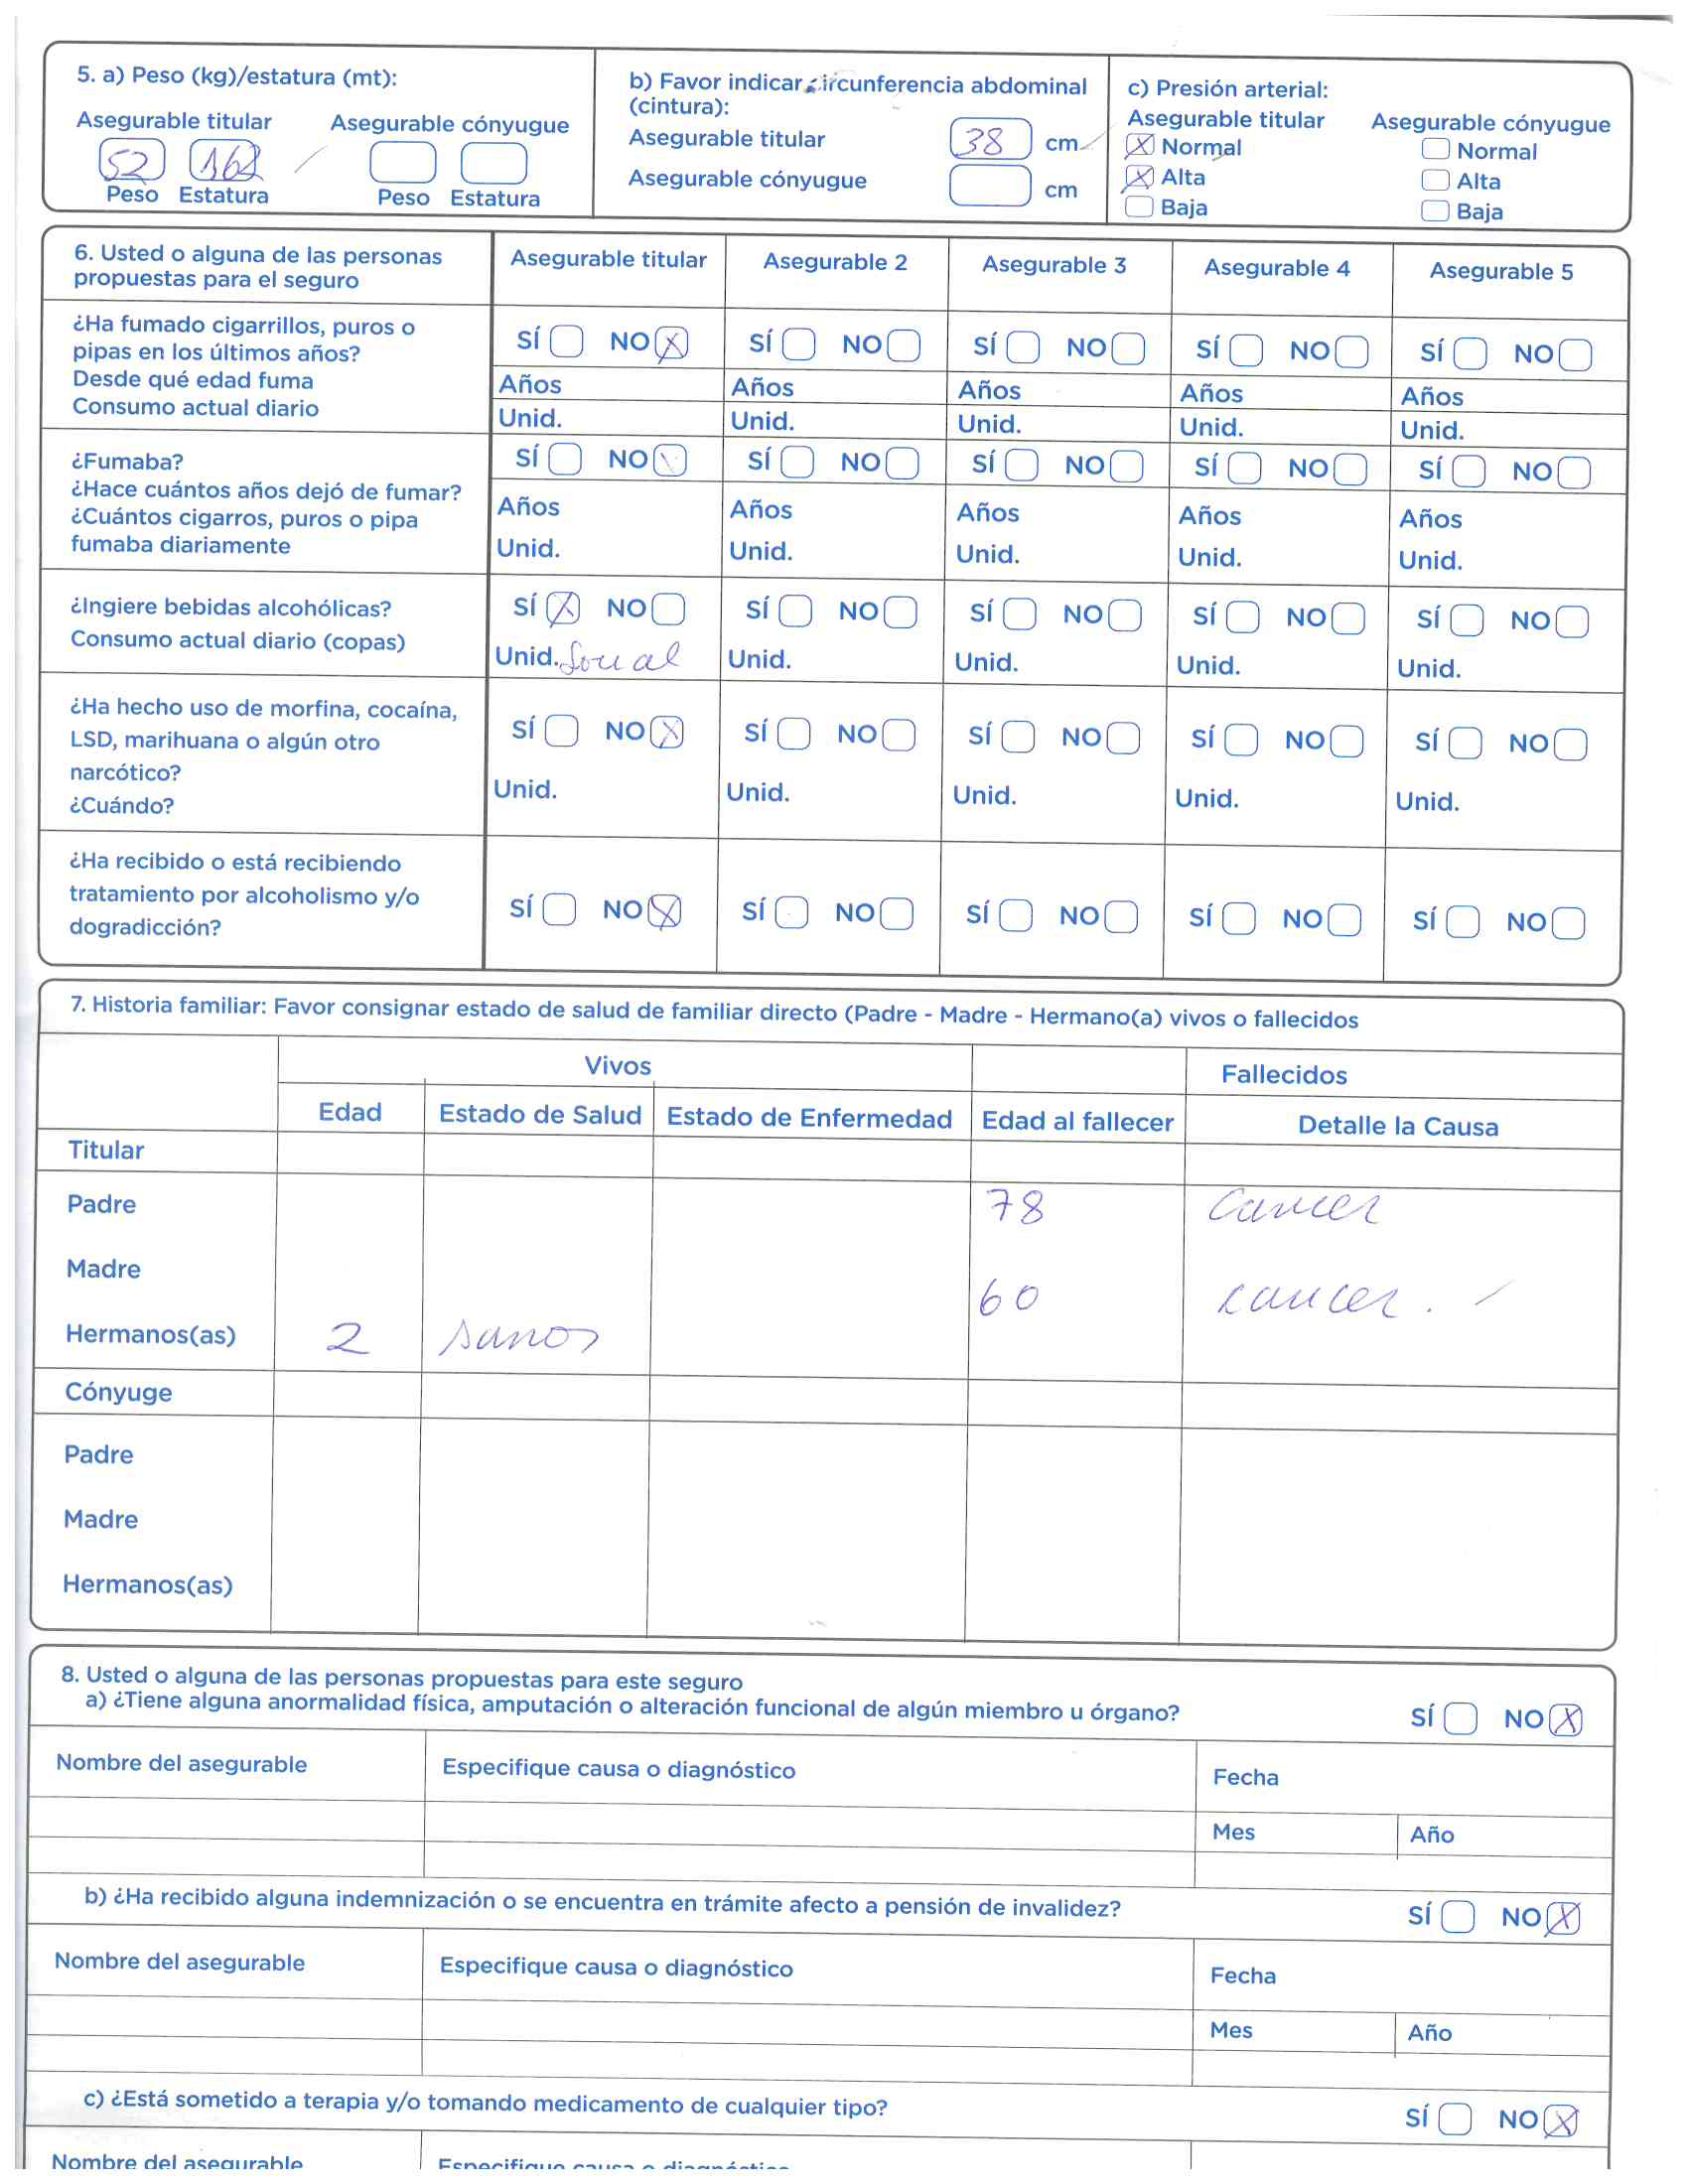 5. a) Peso (kg)/estatura (mt):
Asegurable titular Asegurable cónyugue
52 162
Peso Estatura Peso Estatura
b) Favor indicar circunferencia abdominal
(cintura):
Asegurable titular 38 cm
Asegurable cónyugue cm
c) Presión arterial:
Asegurable titular Asegurable cónyugue
X Normal Normal
X Alta Alta
Baja Baja
6. Usted o alguna de las personas
propuestas para el seguro
Asegurable titular Asegurable 2 Asegurable 3 Asegurable 4 Asegurable 5
¿Ha fumado cigarrillos, puros o
pipas en los últimos años?
Desde qué edad fuma
Consumo actual diario
SÍ NO X SÍ NO SÍ NO SÍ NO SÍ NO
Años Años Años Años Años
Unid. Unid. Unid. Unid. Unid.
¿Fumaba?
¿Hace cuántos años dejó de fumar?
¿Cuántos cigarros, puros o pipa
fumaba diariamente
SÍ NO SÍ NO SÍ NO SÍ NO SÍ NO
Años Años Años Años Años
Unid. Unid. Unid. Unid. Unid.
¿Ingiere bebidas alcohólicas?
Consumo actual diario (copas)
SÍ X NO SÍ NO SÍ NO SÍ NO SÍ NO
Unid. Social Unid. Unid. Unid. Unid.
¿Ha hecho uso de morfina, cocaína,
LSD, marihuana o algún otro
narcótico?
¿Cuándo?
SÍ NO X SÍ NO SÍ NO SÍ NO SÍ NO
Unid. Unid. Unid. Unid. Unid.
¿Ha recibido o está recibiendo
tratamiento por alcoholismo y/o
dogradicción?
SÍ NO X SÍ NO SÍ NO SÍ NO SÍ NO
7. Historia familiar: Favor consignar estado de salud de familiar directo (Padre - Madre - Hermano(a) vivos o fallecidos
Vivos Fallecidos
Edad Estado de Salud Estado de Enfermedad Edad al fallecer Detalle la Causa
Titular
Padre 78 Cancer
Madre 60 cancer.
Hermanos(as) 2 sanos
Cónyuge
Padre
Madre
Hermanos(as)
8. Usted o alguna de las personas propuestas para este seguro
a) ¿Tiene alguna anormalidad física, amputación o alteración funcional de algún miembro u órgano? SÍ NO X
Nombre del asegurable Especifique causa o diagnóstico Fecha
Mes Año
b) ¿Ha recibido alguna indemnización o se encuentra en trámite afecto a pensión de invalidez? SÍ NO X
Nombre del asegurable Especifique causa o diagnóstico Fecha
Mes Año
c) ¿Está sometido a terapia y/o tomando medicamento de cualquier tipo? SÍ NO X
Nombre del asegurable Especifique causa o diagnóstico